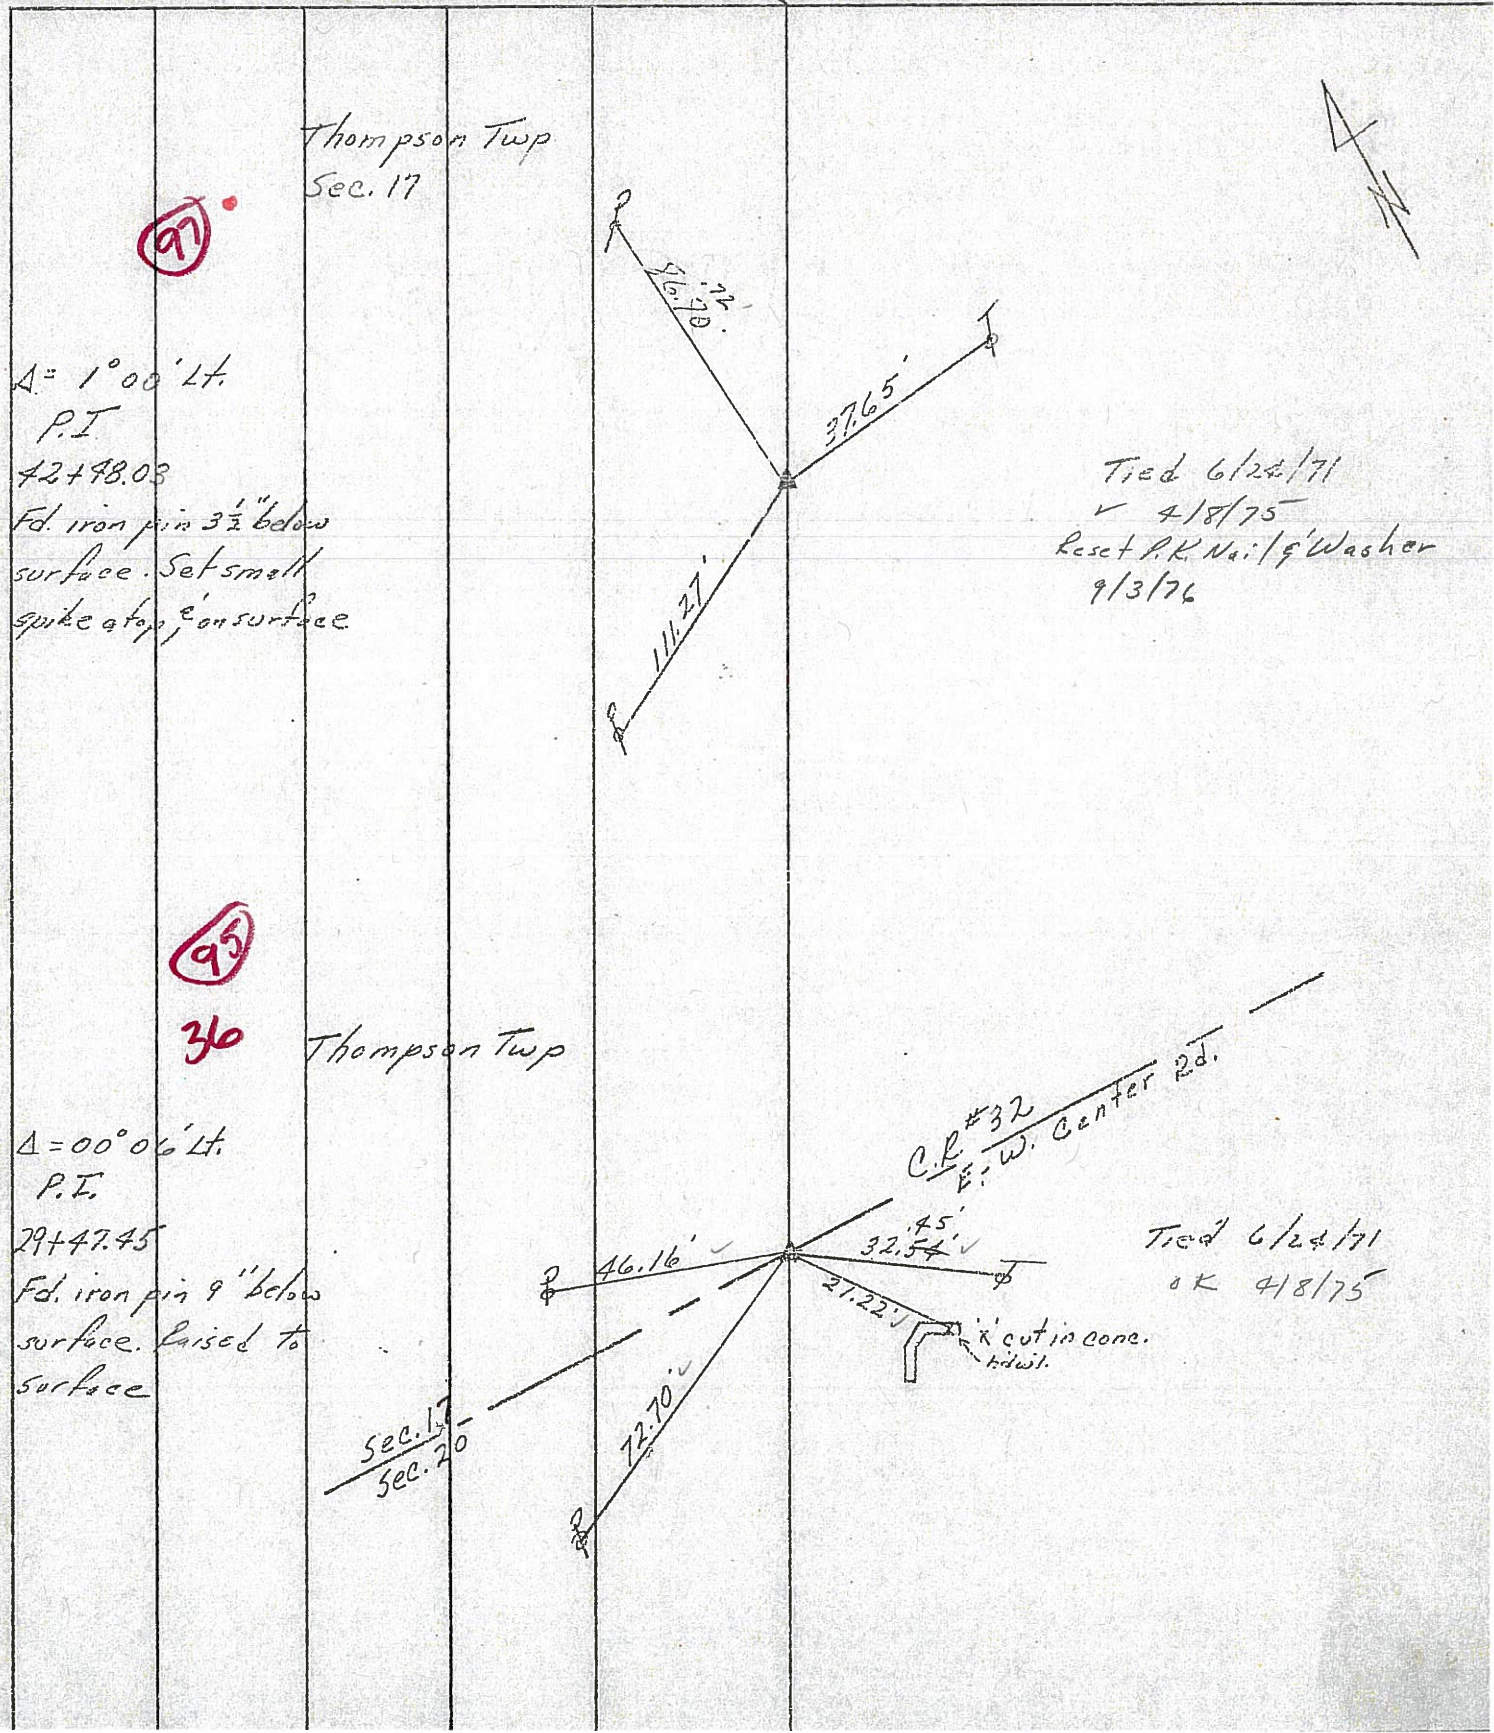 Thompson Twp
Sec. 17
97
N
.72
86.70'
37.65'
111.27'
Δ = 1°00' Lt.
P.I.
42+48.03
Fd. iron pin 3½" below
surface. Set small
spike atop & on surface
Tied 6/24/71
✓ 4/8/75
Reset P.K. Nail & Washer
9/3/76
95
36
Thompson Twp
Δ = 00°06' Lt.
P.I.
29+47.45
Fd. iron pin 9" below
surface. Raised to
surface
C.R. #32
E. W. Center Rd.
46.16' ✓
.45'
32.54 ✓
21.22' ✓
'x' cut in conc.
hdwl.
72.70' ✓
Sec. 17
Sec. 20
Tied 6/24/71
OK 4/8/75